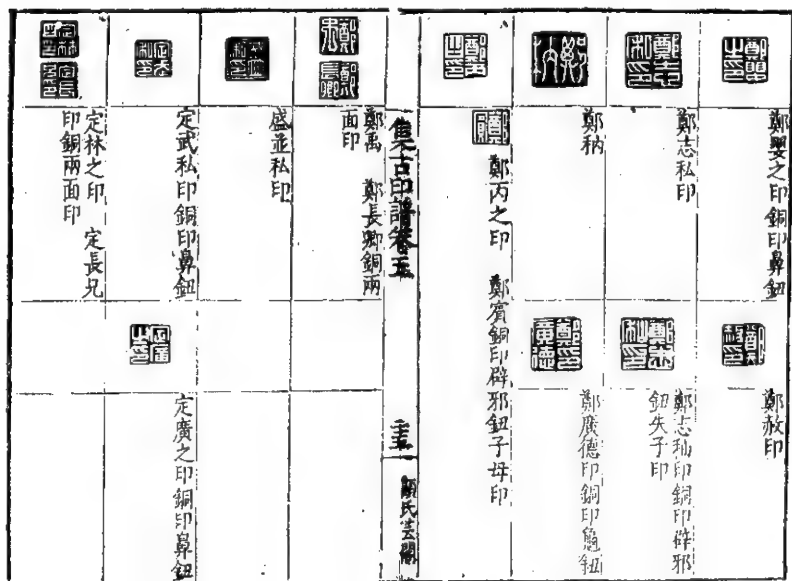 鄭嬰之印銅印鼻鈕
鄭赦印
鄭志私印
鄭志私印銅印辟邪
鈕失子印
鄭納
鄭廣德印銅印龜鈕
鄭丙之印　鄭賓銅印辟邪鈕子母印
集古印譜卷五
顧氏芸閣
鄭禹　鄭長卿銅兩
面印
盛並私印
定武私印銅印鼻鈕
定廣之印銅印鼻鈕
定林之印　定長兄
印銅兩面印